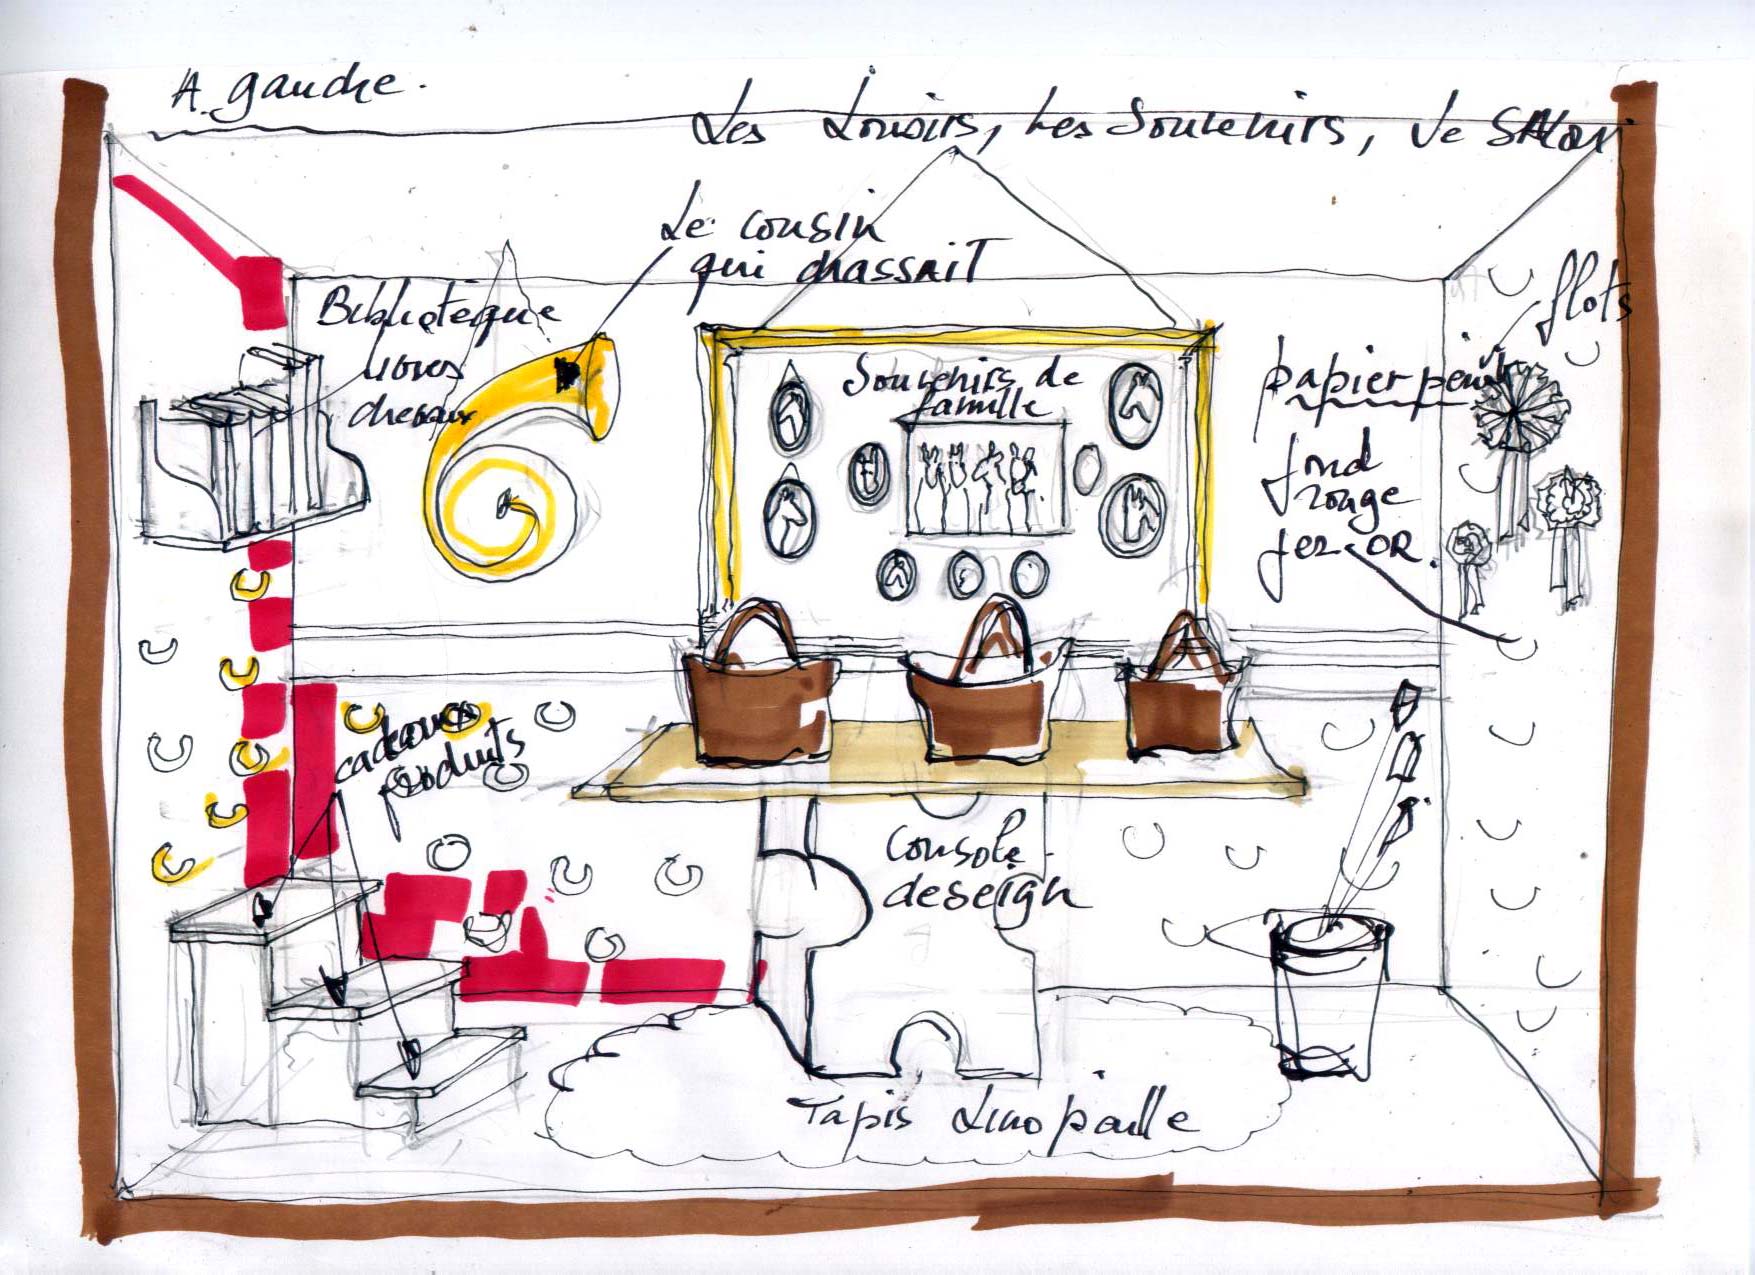 A gauche.
Les Loisirs, Les Souvenirs, Le SAlon
Le cousin
qui chassait
Bibliotèque
livres
chevaux
Souvenirs de
famille
flots
papier peint
fond
rouge
fer OR.
cadeaux
produits
console
deseign
Tapis Lino paille